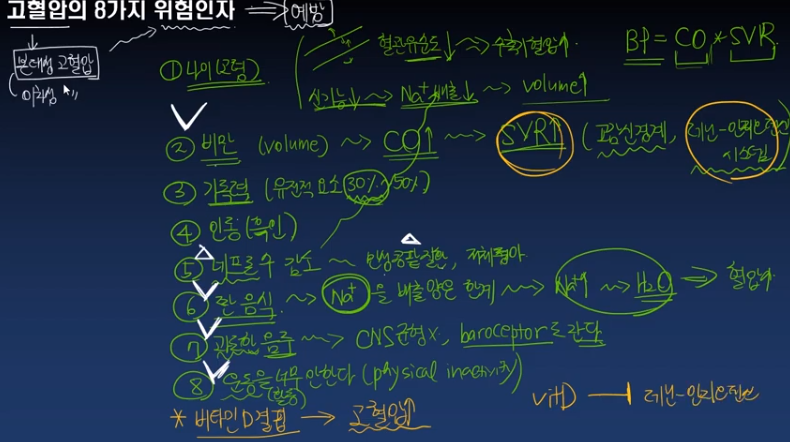 고혈압의 8가지 위험인자 ⇒ 예방
본태성 고혈압
이차성
BP = CO * SVR
① 나이(고령)
혈관유순도↓ ~> 수축기혈압↑
신기능↓ ~> Na⁺배출↓ ~> volume↑
② 비만 (volume) ~> CO↑ ~> SVR↑ (교감신경계, 레닌-안지오텐신 시스템)
③ 가족력 (유전적 요소 30% ~ 50%)
④ 인종 (흑인)
⑤ 네프론 수 감소 ~ 만성콩팥질환,
⑥ 짠 음식 ~> Na⁺을 배출양은 한계 ~> Na⁺↑ ~> H₂O ⇒ 혈압↑
⑦ 과도한 음주 ~> CNS균형X, baroceptor도 간다
⑧ 운동을 너무 안한다 (physical inactivity)
(활동)
* 비타민D결핍 → 고혈압↑
vitD ⊣ 레닌-안지오텐신